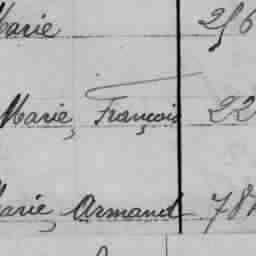 Marie 256
Marie, François 22
Marie, Armand 784